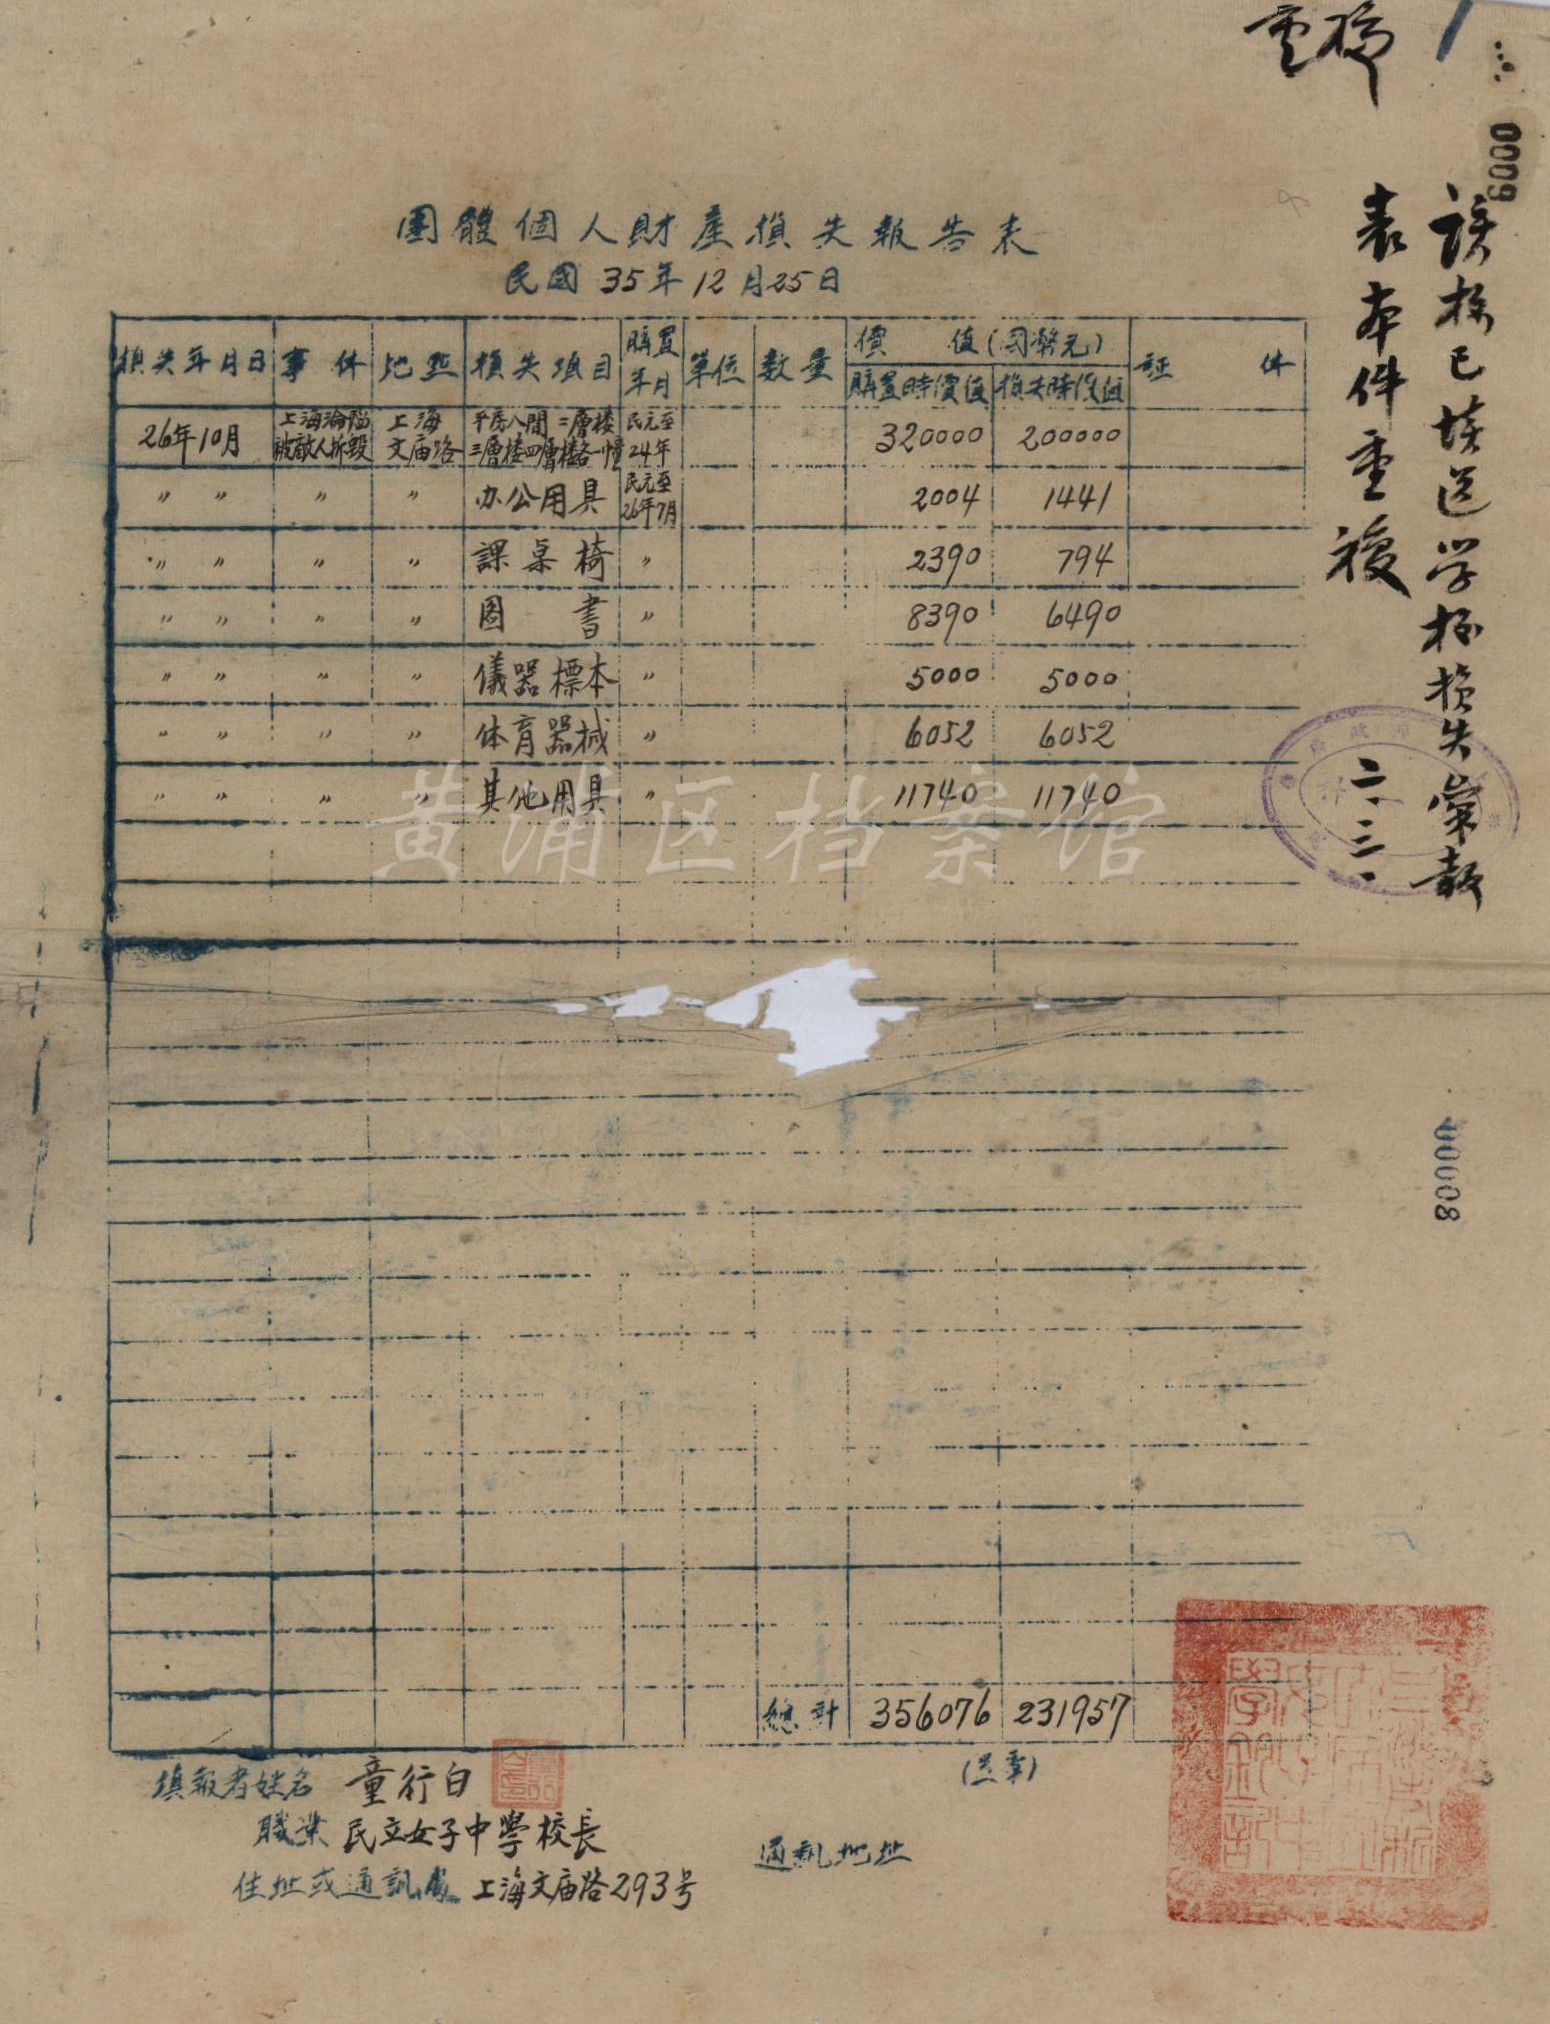 0009
該校已填送学校損失彙報
表本件重複
二.三.
團體個人財產損失報告表
民國35年12月25日
損失年月日 事件 地點 損失項目 購置年月 單位 数量 價值(国幣元) 証件
購置時價值 損失時價值
26年10月 上海淪陷被敵人拆毀 上海文庙路 平房八間 二層楼三層楼四層楼各一幢 民元至24年 320000 200000
〃 〃 〃 〃 办公用具 民元至26年7月 2004 1441
〃 〃 〃 〃 課桌椅 〃 2390 794
〃 〃 〃 〃 图書 〃 8390 6490
〃 〃 〃 〃 儀器標本 〃 5000 5000
〃 〃 〃 〃 体育器械 〃 6052 6052
〃 〃 〃 〃 其他用具 〃 11740 11740
黄浦区档案馆
00008
總計 356076 231957
填報者姓名 童行白
(盖章)
職業 民立女子中學校長
通訊地址
住址或通訊處 上海文庙路293号